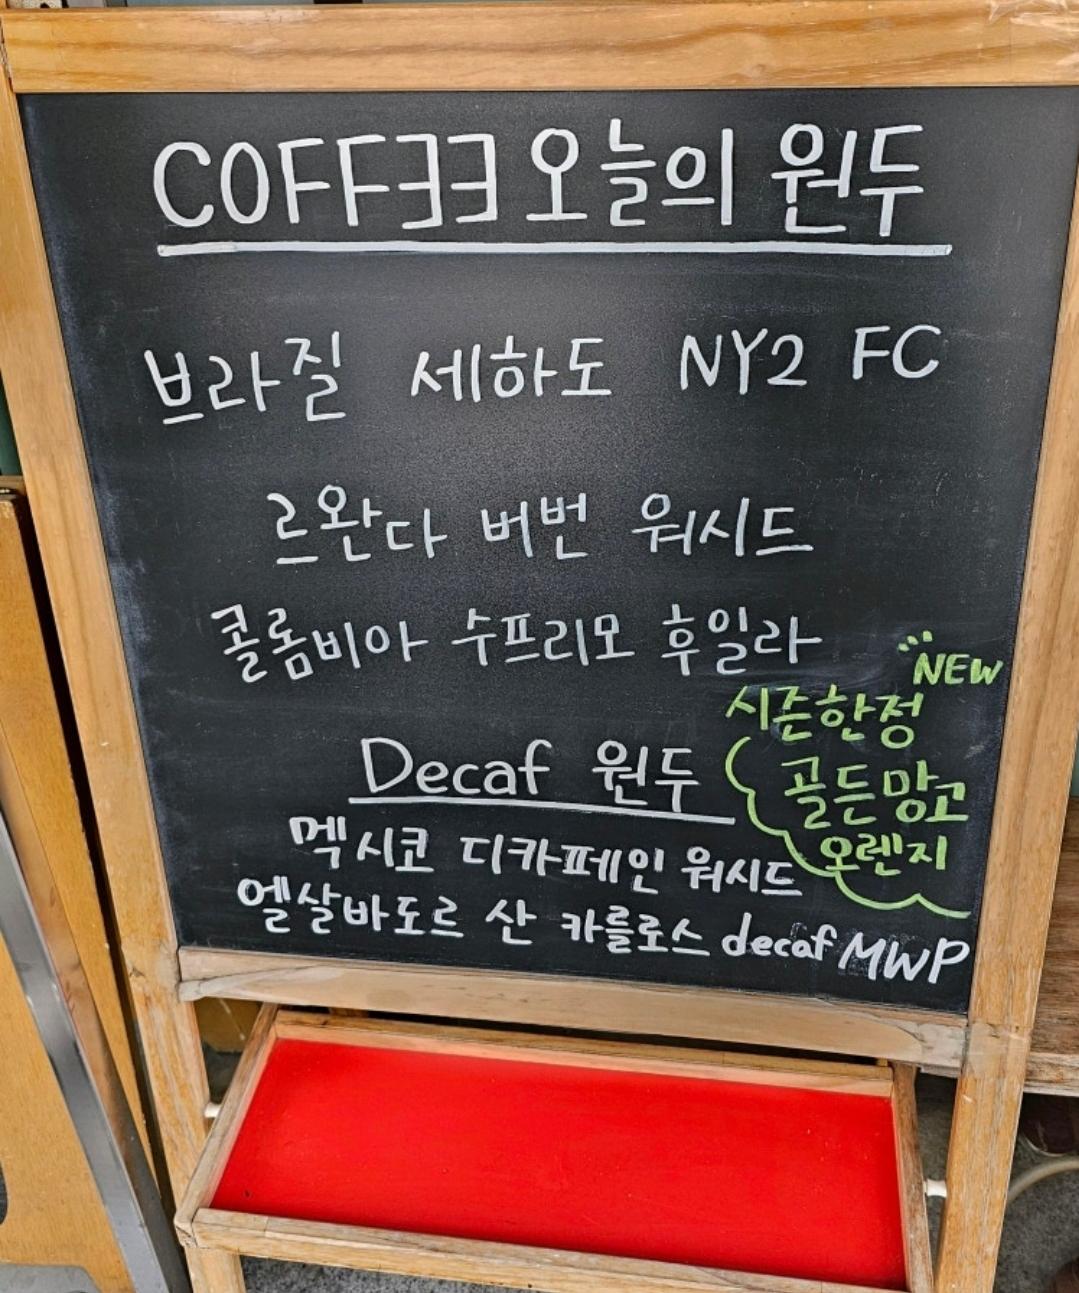 COFFEE 오늘의 원두
브라질 세하도 NY2 FC
르완다 버번 워시드
콜롬비아 수프리모 후일라
NEW
시즌한정
골든망고
오렌지
Decaf 원두
멕시코 디카페인 워시드
엘살바도르 산 카를로스 decaf MWP